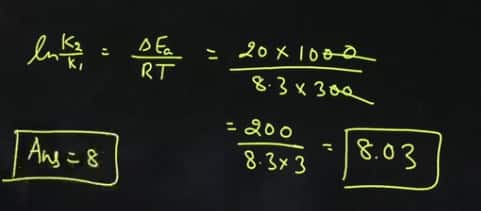 ln K₂/K₁ = ΔEₐ/RT = 20 × 1000/8.3 × 300
= 200/8.3×3 = 8.03
Ans = 8